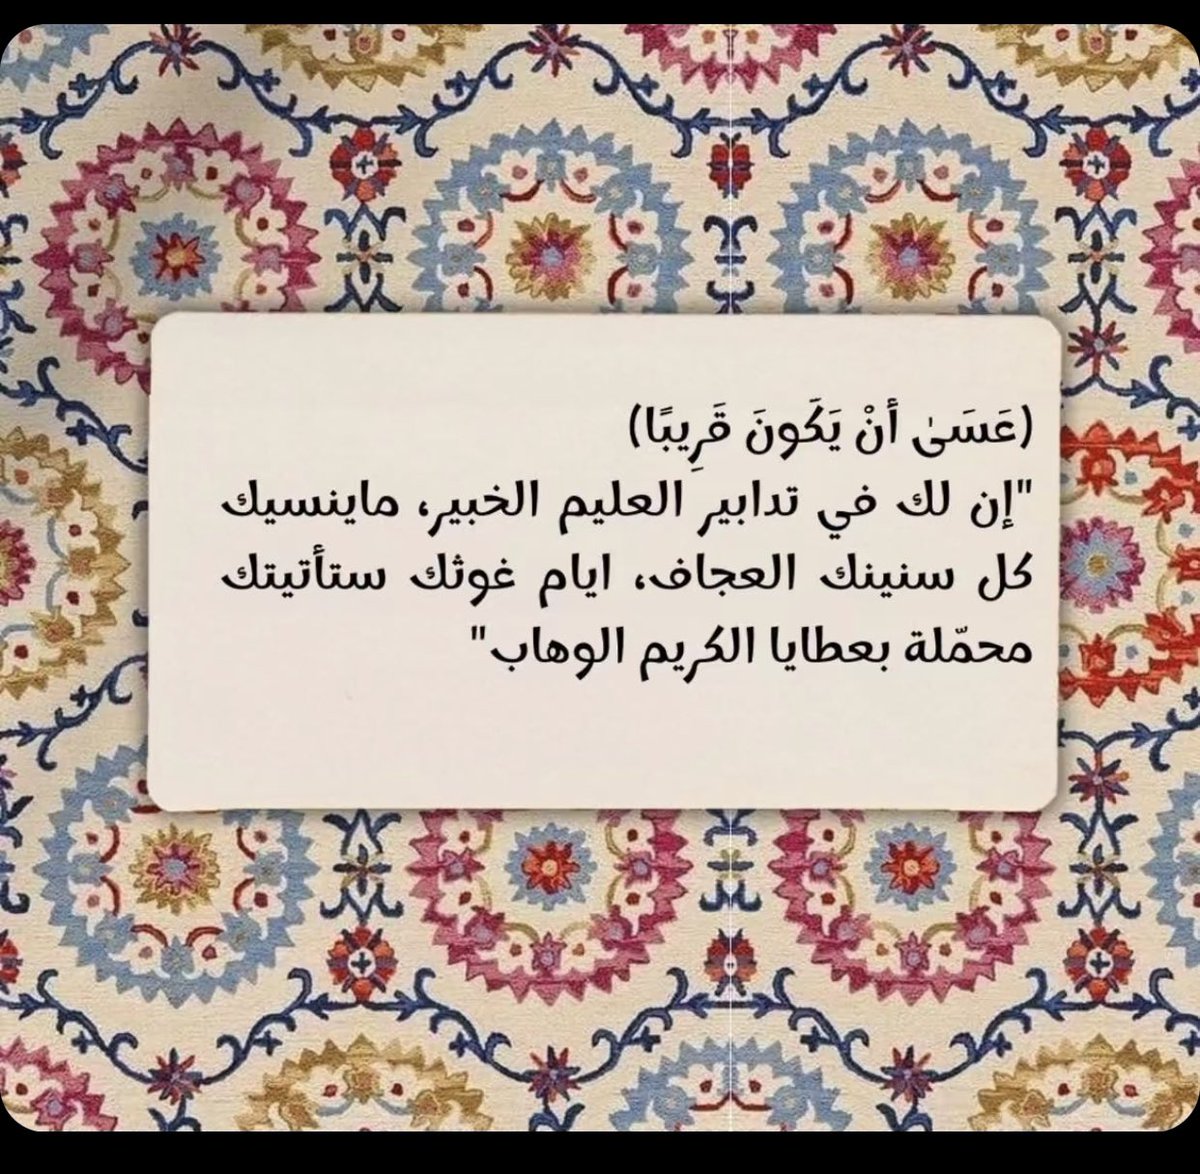 (عَسَىٰ أَنْ يَكُونَ قَرِيبًا)
"إن لك في تدابير العليم الخبير، ماينسيك
كل سنينك العجاف، ايام غوثك ستأتيتك
محمّلة بعطايا الكريم الوهاب"